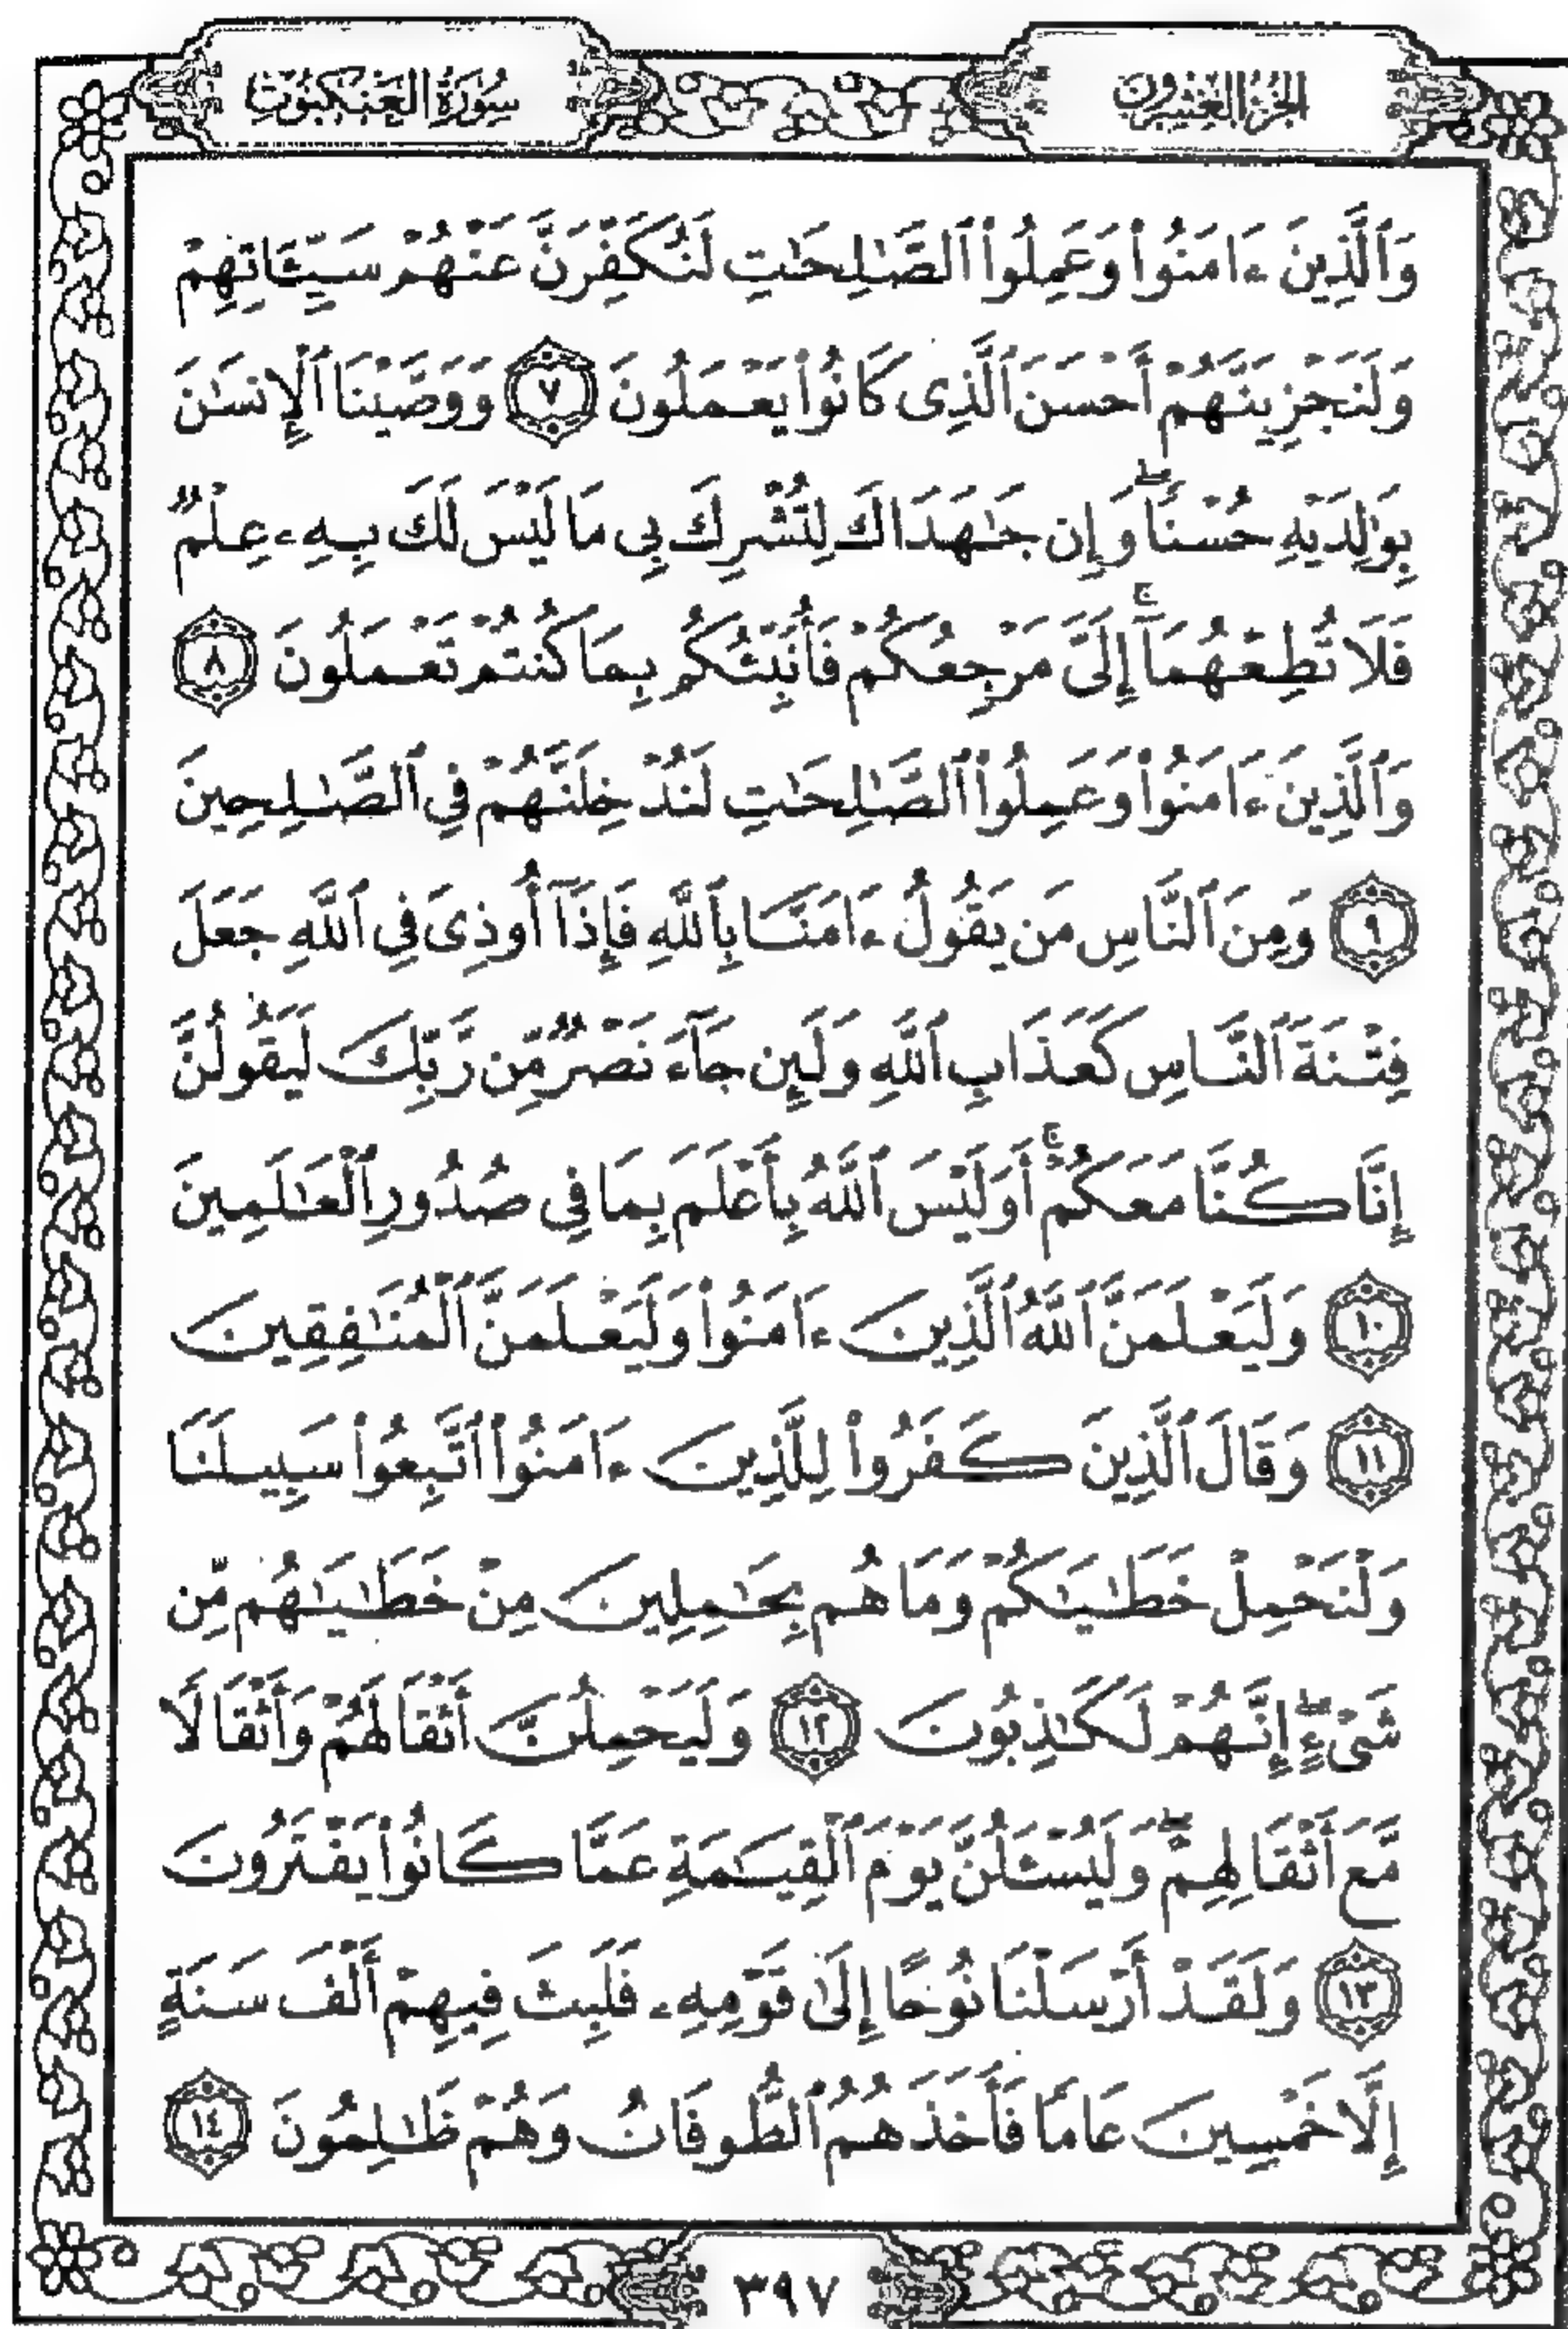 الجُزْءُ العِشْرُونَ
سُورَةُ العَنكَبُوتِ
وَٱلَّذِينَ ءَامَنُوا۟ وَعَمِلُوا۟ ٱلصَّـٰلِحَـٰتِ لَنُكَفِّرَنَّ عَنْهُمْ سَيِّـَٔاتِهِمْ
وَلَنَجْزِيَنَّهُمْ أَحْسَنَ ٱلَّذِى كَانُوا۟ يَعْمَلُونَ ٧ وَوَصَّيْنَا ٱلْإِنسَـٰنَ
بِوَٰلِدَيْهِ حُسْنًا ۖ وَإِن جَـٰهَدَاكَ لِتُشْرِكَ بِى مَا لَيْسَ لَكَ بِهِۦ عِلْمٌ
فَلَا تُطِعْهُمَآ ۚ إِلَىَّ مَرْجِعُكُمْ فَأُنَبِّئُكُم بِمَا كُنتُمْ تَعْمَلُونَ ٨
وَٱلَّذِينَ ءَامَنُوا۟ وَعَمِلُوا۟ ٱلصَّـٰلِحَـٰتِ لَنُدْخِلَنَّهُمْ فِى ٱلصَّـٰلِحِينَ
٩ وَمِنَ ٱلنَّاسِ مَن يَقُولُ ءَامَنَّا بِٱللَّهِ فَإِذَآ أُوذِىَ فِى ٱللَّهِ جَعَلَ
فِتْنَةَ ٱلنَّاسِ كَعَذَابِ ٱللَّهِ وَلَئِن جَآءَ نَصْرٌ مِّن رَّبِّكَ لَيَقُولُنَّ
إِنَّا كُنَّا مَعَكُمْ ۚ أَوَلَيْسَ ٱللَّهُ بِأَعْلَمَ بِمَا فِى صُدُورِ ٱلْعَـٰلَمِينَ
١٠ وَلَيَعْلَمَنَّ ٱللَّهُ ٱلَّذِينَ ءَامَنُوا۟ وَلَيَعْلَمَنَّ ٱلْمُنَـٰفِقِينَ
١١ وَقَالَ ٱلَّذِينَ كَفَرُوا۟ لِلَّذِينَ ءَامَنُوا۟ ٱتَّبِعُوا۟ سَبِيلَنَا
وَلْنَحْمِلْ خَطَـٰيَـٰكُمْ وَمَا هُم بِحَـٰمِلِينَ مِنْ خَطَـٰيَـٰهُم مِّن
شَىْءٍ ۖ إِنَّهُمْ لَكَـٰذِبُونَ ١٢ وَلَيَحْمِلُنَّ أَثْقَالَهُمْ وَأَثْقَالًا
مَّعَ أَثْقَالِهِمْ ۖ وَلَيُسْـَٔلُنَّ يَوْمَ ٱلْقِيَـٰمَةِ عَمَّا كَانُوا۟ يَفْتَرُونَ
١٣ وَلَقَدْ أَرْسَلْنَا نُوحًا إِلَىٰ قَوْمِهِۦ فَلَبِثَ فِيهِمْ أَلْفَ سَنَةٍ
إِلَّا خَمْسِينَ عَامًا فَأَخَذَهُمُ ٱلطُّوفَانُ وَهُمْ ظَـٰلِمُونَ ١٤
٣٩٧